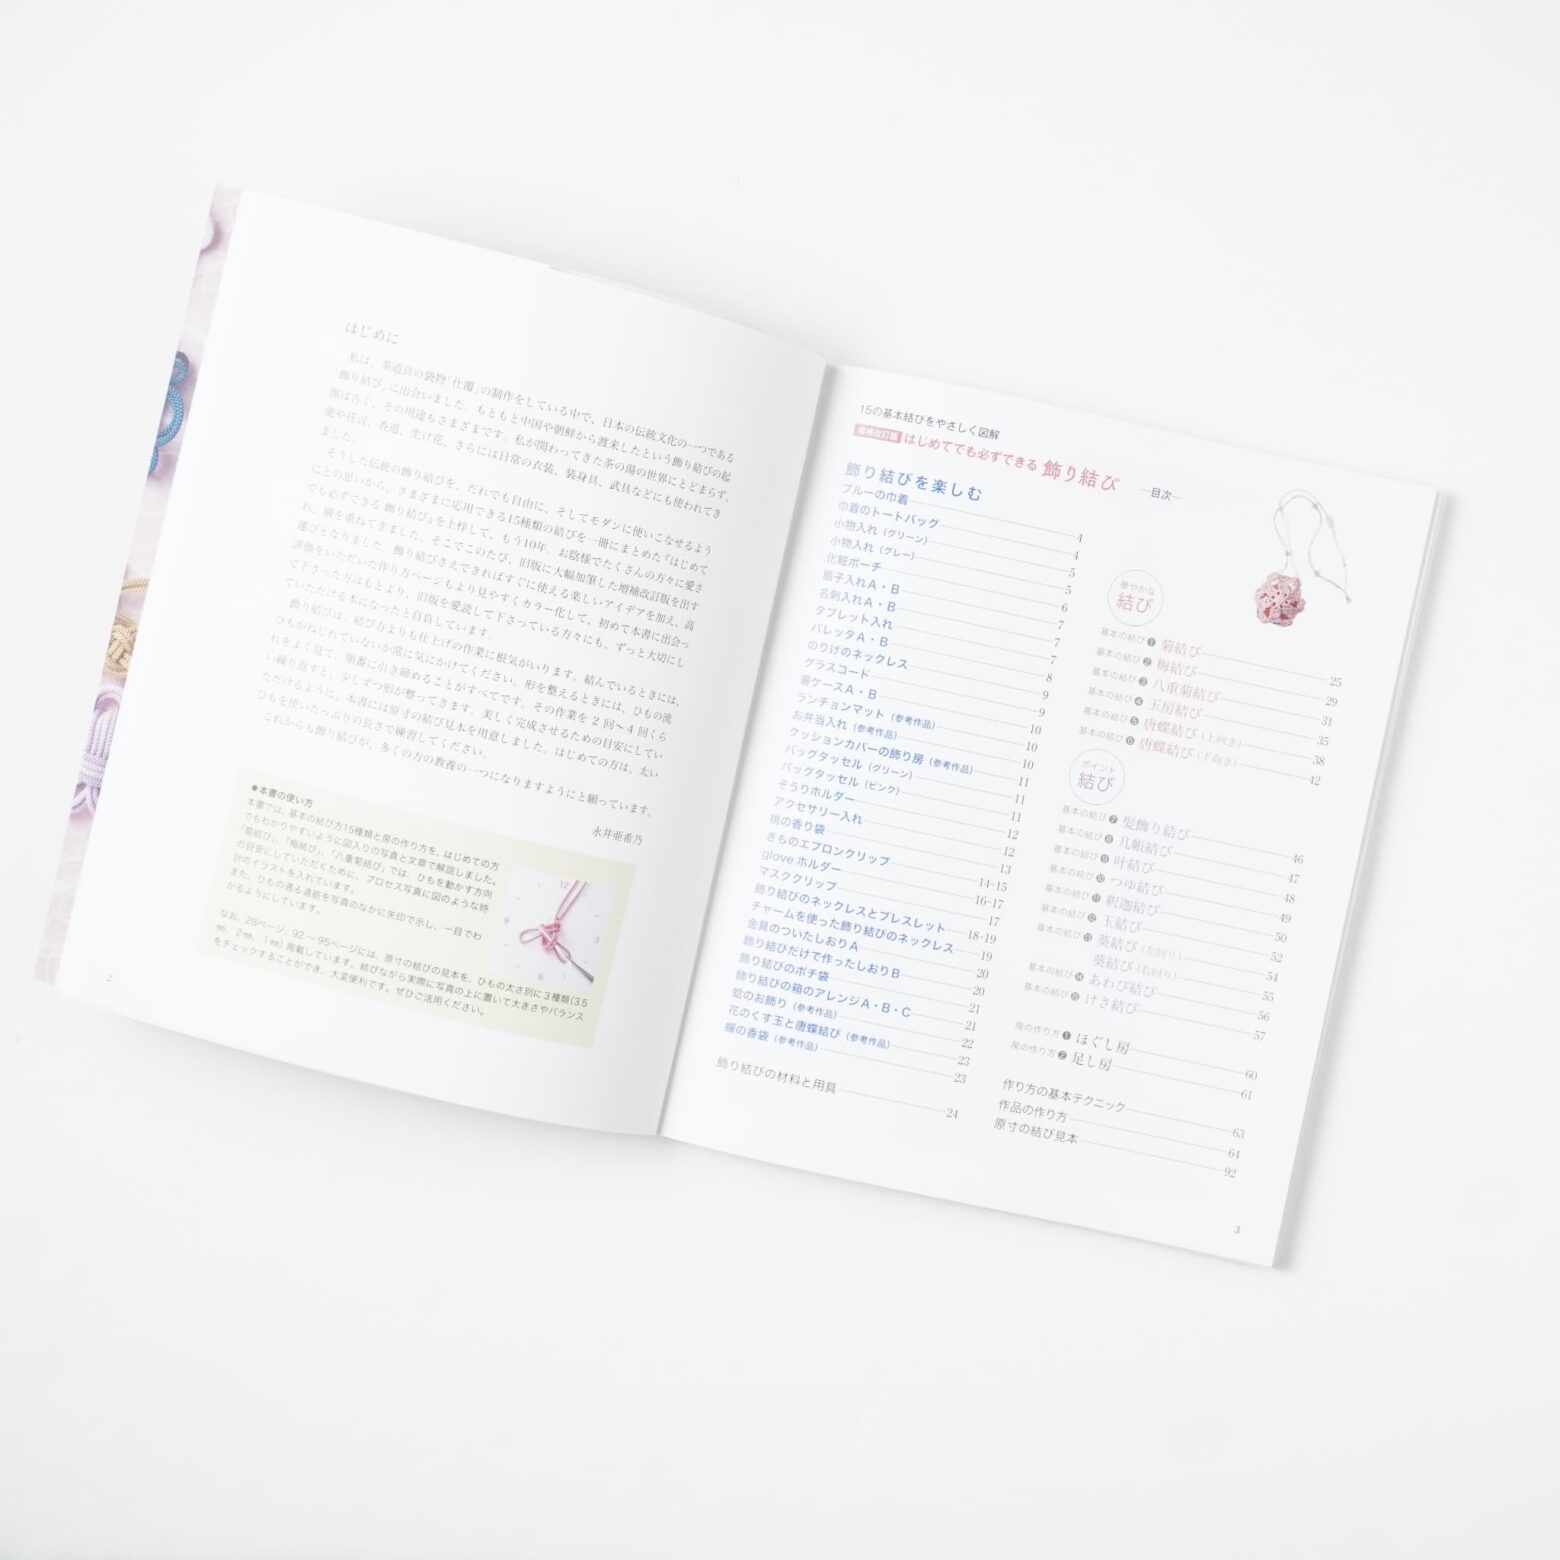 はじめに
私は、茶道具の袋物「仕覆」の制作をしている中で、日本の伝統文化の一つである
「飾り結び」に出会いました。もともと中国や朝鮮から渡来したという飾り結びの起
源は古く、その用途もさまざまです。私が関わってきた茶の湯の世界にとどまらず、
能や狂言、香道、生け花、さらには日常の衣装、装身具、武具などにも使われてき
ました。
そうした伝統の飾り結びを、だれでも自由に、そしてモダンに使いこなせるよう
にとの思いから、さまざまに応用できる15種類の結びを一冊にまとめた『はじめて
でも必ずできる 飾り結び』を上梓して、もう10年。お陰様でたくさんの方々に愛さ
れ、刷を重ねてきました。そこでこのたび、旧版に大幅加筆した増補改訂版を出す
運びとなりました。飾り結びさえできればすぐに使える楽しいアイデアを加え、高
評価をいただいた作り方ページもより見やすくカラー化して、初めて本書に出会っ
て下さった方はもとより、旧版を愛読して下さっている方々にも、ずっと大切にし
ていただける本になったと自負しています。
飾り結びは、結び方よりも仕上げの作業に根気がいります。結んでいるときには、
ひもがねじれていないか常に気にかけてください。形を整えるときには、ひもの流
れをよく見て、順番に引き締めることがすべてです。その作業を 2 回～4 回くら
い繰り返すと、少しずつ形が整ってきます。美しく完成させるための目安にしてい
ただけるように、本書には原寸の結び見本を用意しました。はじめての方は、太い
ひもを使いたっぷりの長さで練習してください。
これからも飾り結びが、多くの方の教養の一つになりますようにと願っています。
永井亜希乃
●本書の使い方
本書では、基本の結び方15種類と房の作り方を、はじめての方
でもわかりやすいように図入りの写真と文章で解説しました。
「菊結び」、「梅結び」、「八重菊結び」では、ひもを動かす方向
の目安にしていただくために、プロセス写真に図のような時
計のイラストを入れています。
また、ひもの通る道筋を写真のなかに矢印で示し、一目でわ
かるようにしています。
なお、28ページ、92～95ページには、原寸の結びの見本を、ひもの太さ別に3種類(3.5
㎜、2㎜、1㎜)掲載しています。結びながら実際に写真の上に置いて大きさやバランス
をチェックすることができ、大変便利です。ぜひご活用ください。
12
9
3
6
2
15の基本結びをやさしく図解
増補改訂版 はじめてでも必ずできる 飾り結び ―目次―
飾り結びを楽しむ
ブルーの巾着 4
巾着のトートバッグ 4
小物入れ（グリーン） 5
小物入れ（グレー） 5
化粧ポーチ 6
扇子入れA・B 7
名刺入れA・B 7
タブレット入れ 7
バレッタA・B 8
のりげのネックレス 9
グラスコード 9
箸ケースA・B 10
ランチョンマット（参考作品） 10
お弁当入れ（参考作品） 10
クッションカバーの飾り房（参考作品） 11
バッグタッセル（グリーン） 11
バッグタッセル（ピンク） 11
ぞうりホルダー 12
アクセサリー入れ 12
桃の香り袋 13
きものエプロンクリップ 14-15
glove ホルダー 16-17
マスククリップ 17
飾り結びのネックレスとブレスレット 18-19
チャームを使った飾り結びのネックレス 19
金具のついたしおりA 20
飾り結びだけで作ったしおりB 20
飾り結びのポチ袋 21
飾り結びの箱のアレンジA・B・C 21
蛤のお飾り（参考作品） 22
花のくす玉と唐蝶結び（参考作品） 23
蝉の香袋（参考作品） 23
飾り結びの材料と用具 24
華やかな
結び
基本の結び❶ 菊結び 25
基本の結び❷ 梅結び 29
基本の結び❸ 八重菊結び 31
基本の結び❹ 玉房結び 35
基本の結び❺ 唐蝶結び（上向き） 38
基本の結び❻ 唐蝶結び（下向き） 42
ポイント
結び
基本の結び❼ 髪飾り結び 46
基本の結び❽ 几帳結び 47
基本の結び❾ 叶結び 48
基本の結び❿ つゆ結び 49
基本の結び⓫ 釈迦結び 50
基本の結び⓬ 玉結び 52
基本の結び⓭ 葵結び（左回り） 54
葵結び（右回り） 55
基本の結び⓮ あわび結び 56
基本の結び⓯ けさ結び 57
房の作り方❶ ほぐし房 60
房の作り方❷ 足し房 61
作り方の基本テクニック 63
作品の作り方 64
原寸の結び見本 92
3